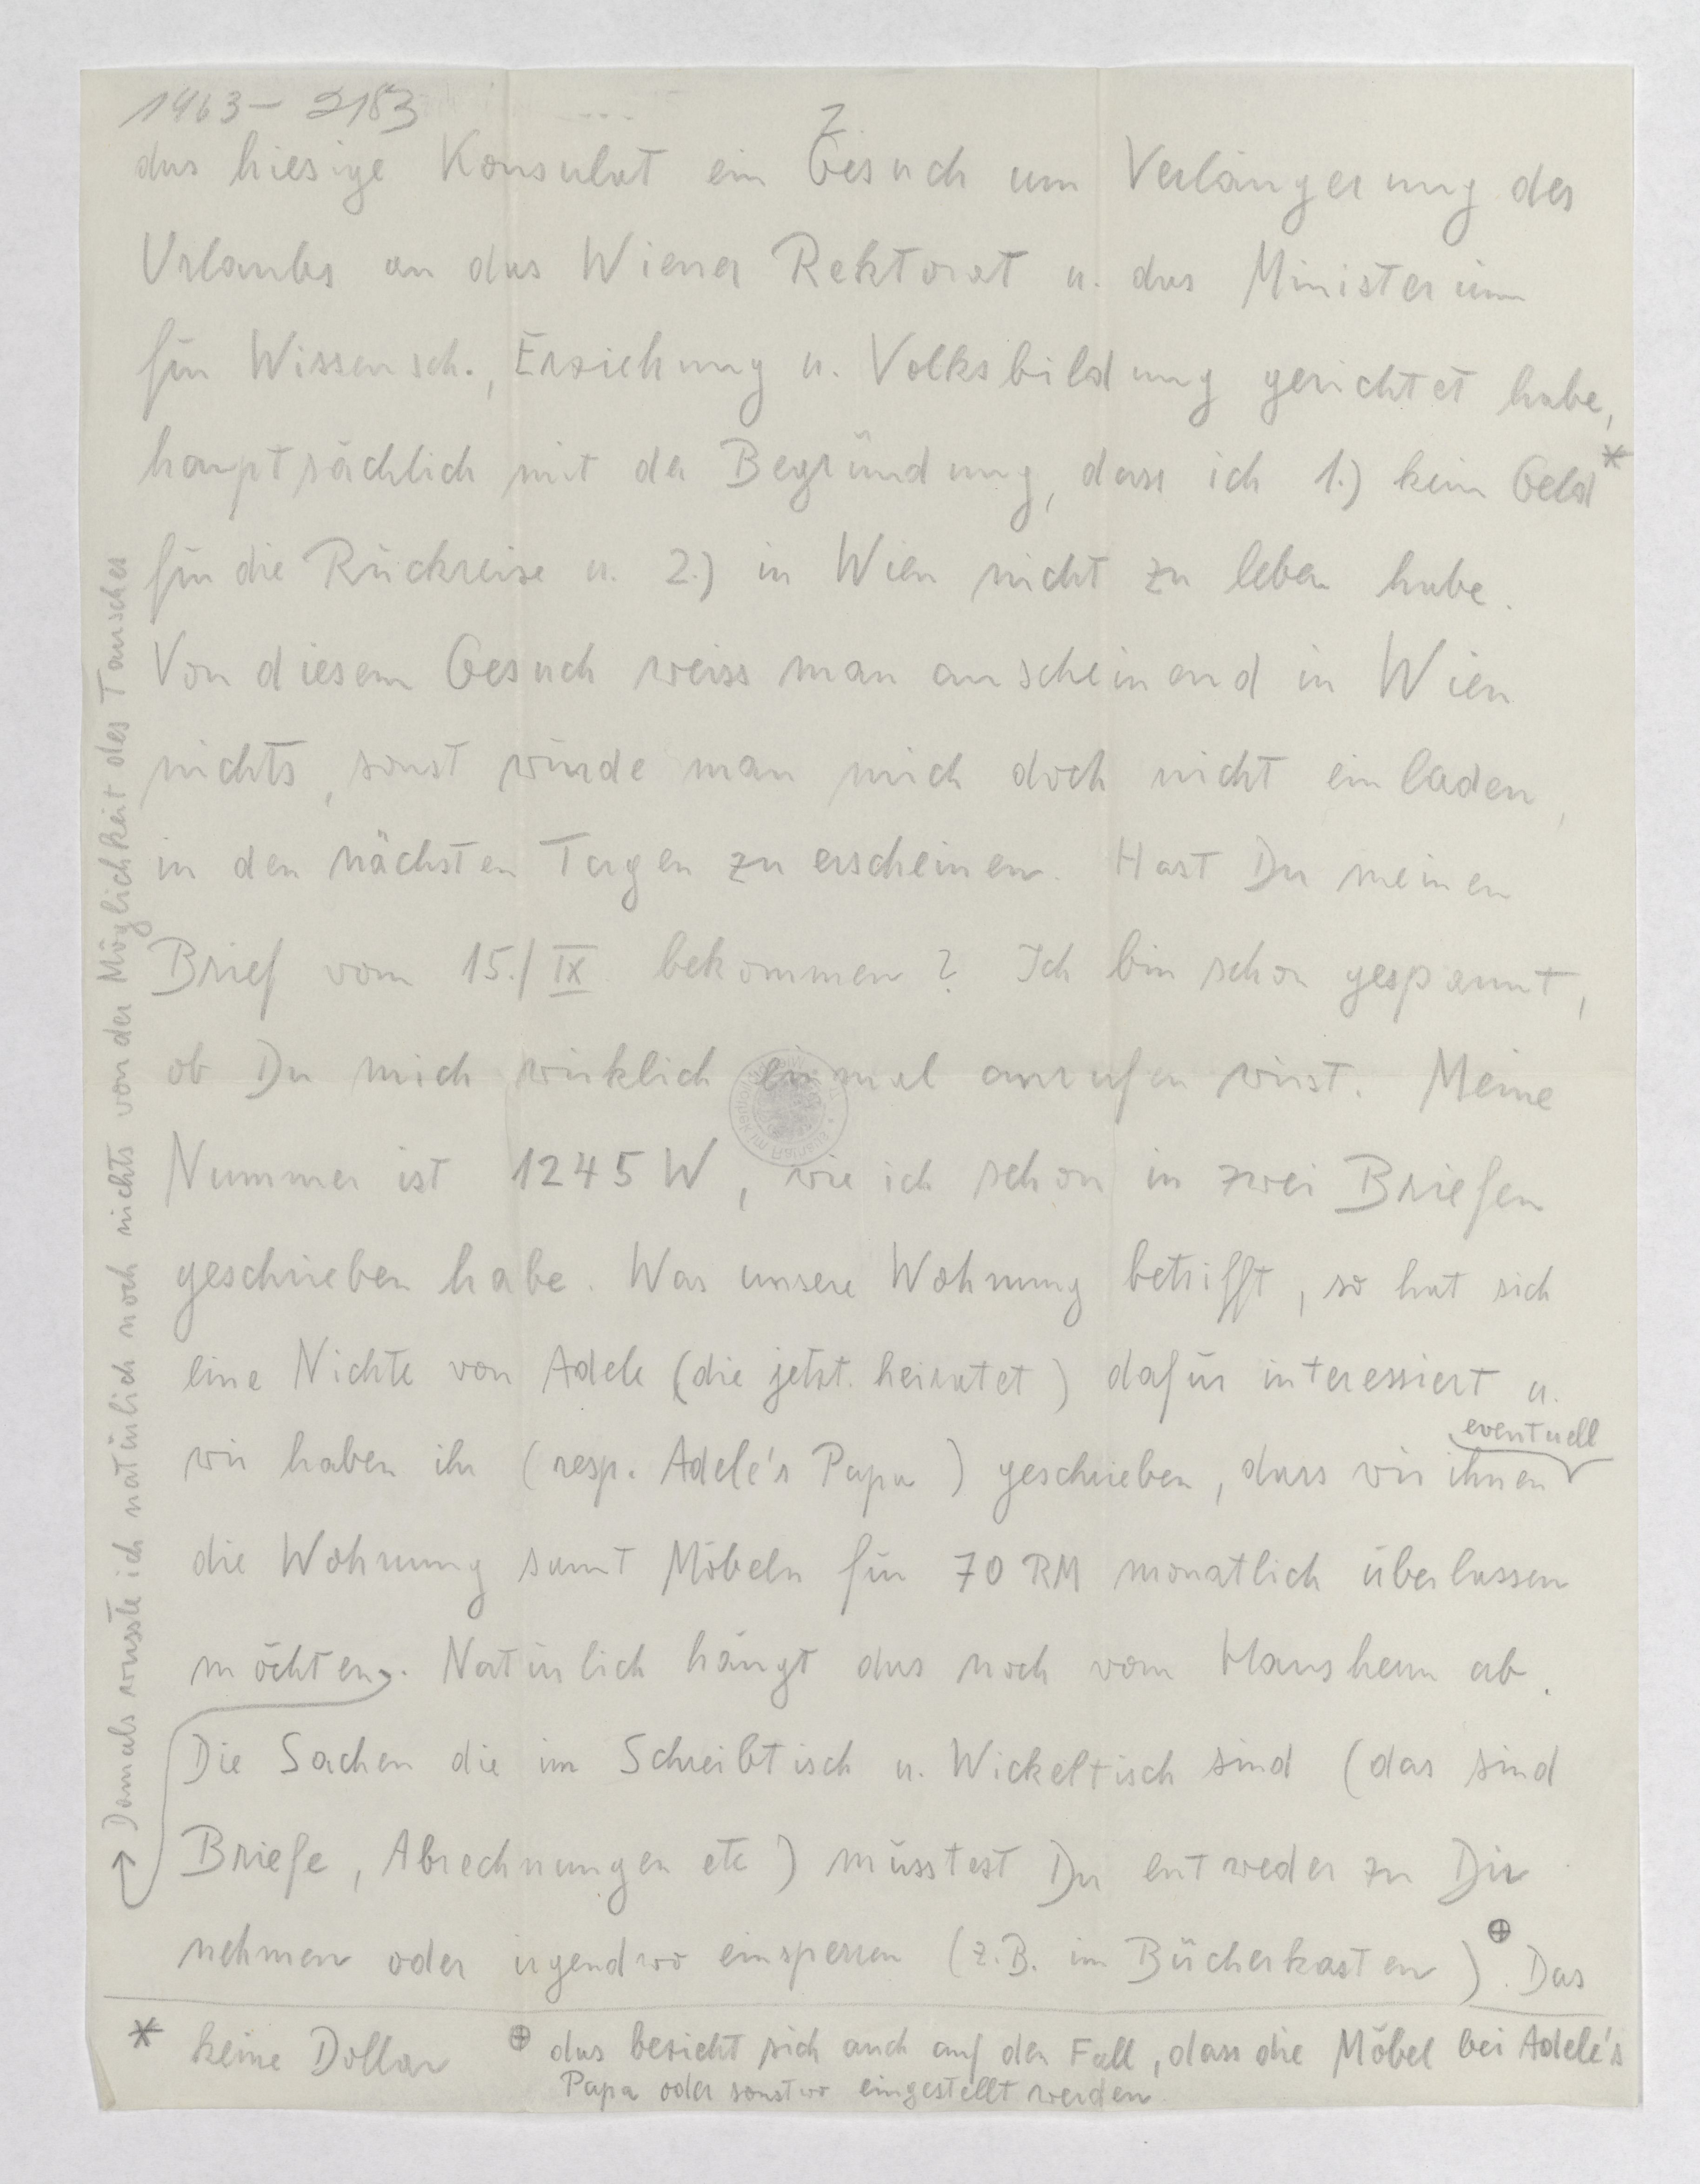 1963- 2183
2.
das hiesige Konsulat ein Gesuch um Verlängerung des
Urlaubs an das Wiener Rektorat u. das Ministerium
für Wissensch., Erziehung u. Volksbildung gerichtet habe,
hauptsächlich mit der Begründung, dass ich 1.) kein Geld*
für die Rückreise u. 2.) in Wien nicht zu leben habe.
Von diesem Gesuch weiss man anscheinend in Wien
nichts, sonst würde man mich doch nicht einladen,
in den nächsten Tagen zu erscheinen. Hast Du meinen
Brief vom 15./IX. bekommen? Ich bin schon gespannt,
ob Du mich wirklich einmal anrufen wirst. Meine
Nummer ist 1245 W, wie ich schon in zwei Briefen
geschrieben habe. Was unsere Wohnung betrifft, so hat sich
eine Nichte von Adele (die jetzt heiratet) dafür interessiert u.
wir haben ihr (resp. Adele's Papa) geschrieben, dass wir ihnen eventuell
die Wohnung samt Möbeln für 70 RM monatlich überlassen
möchten. Natürlich hängt das noch vom Hausherrn ab.
Die Sachen die im Schreibtisch u. Wickeltisch sind (das sind
Briefe, Abrechnungen etc) müsstest Du entweder zu Dir
nehmen oder irgendwo einsperren (z.B. im Bücherkasten)⊕. Das
* keine Dollar
⊕ das bezieht sich auch auf den Fall, dass die Möbel bei Adele's
Papa oder sonstwo eingestellt werden
→ Damals wusste ich natürlich noch nichts von der Möglichkeit des Tausches